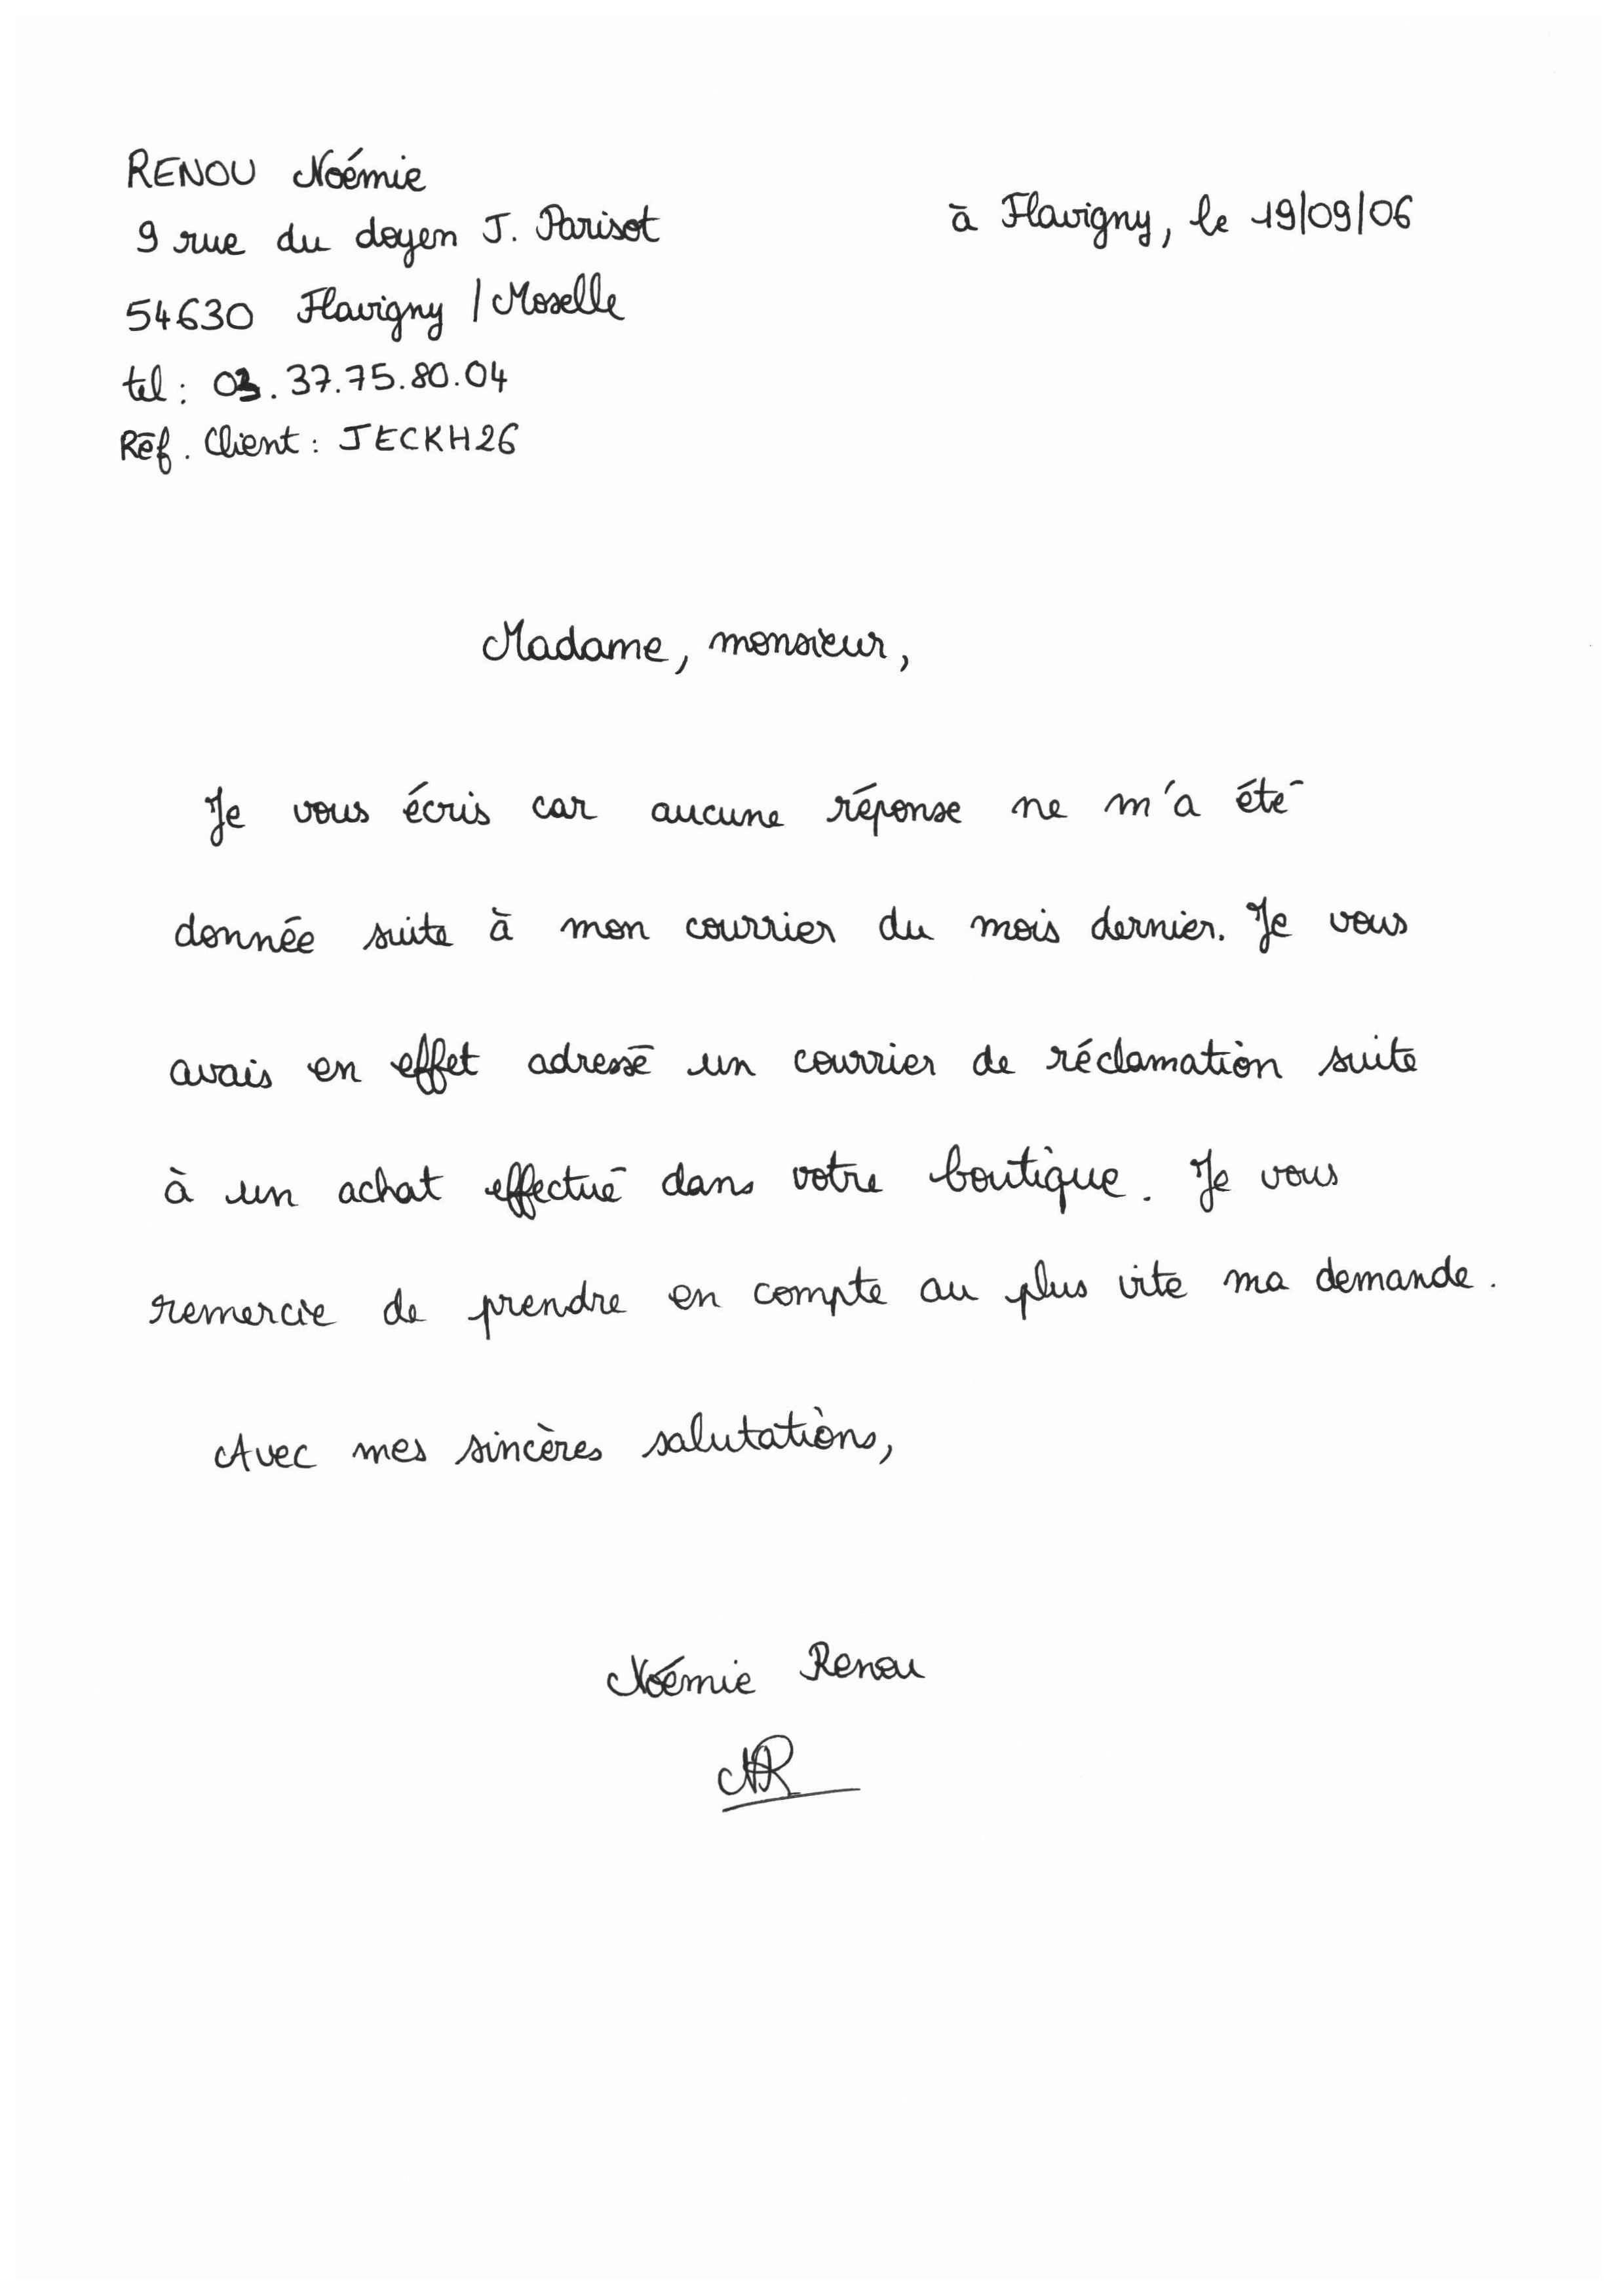 RENOU Noémie
9 rue du doyen J. Parisot
à Flavigny, le 19/09/06
54630 Flavigny / Moselle
tel : 03.37.75.80.04
Réf. Client : JECKH26
Madame, monsieur,
Je vous écris car aucune réponse ne m'a été
donnée suite à mon courrier du mois dernier. Je vous
avais en effet adressé un courrier de réclamation suite
à un achat effectué dans votre boutique. Je vous
remercie de prendre en compte au plus vite ma demande.
Avec mes sincères salutations,
Noémie Renou
NR